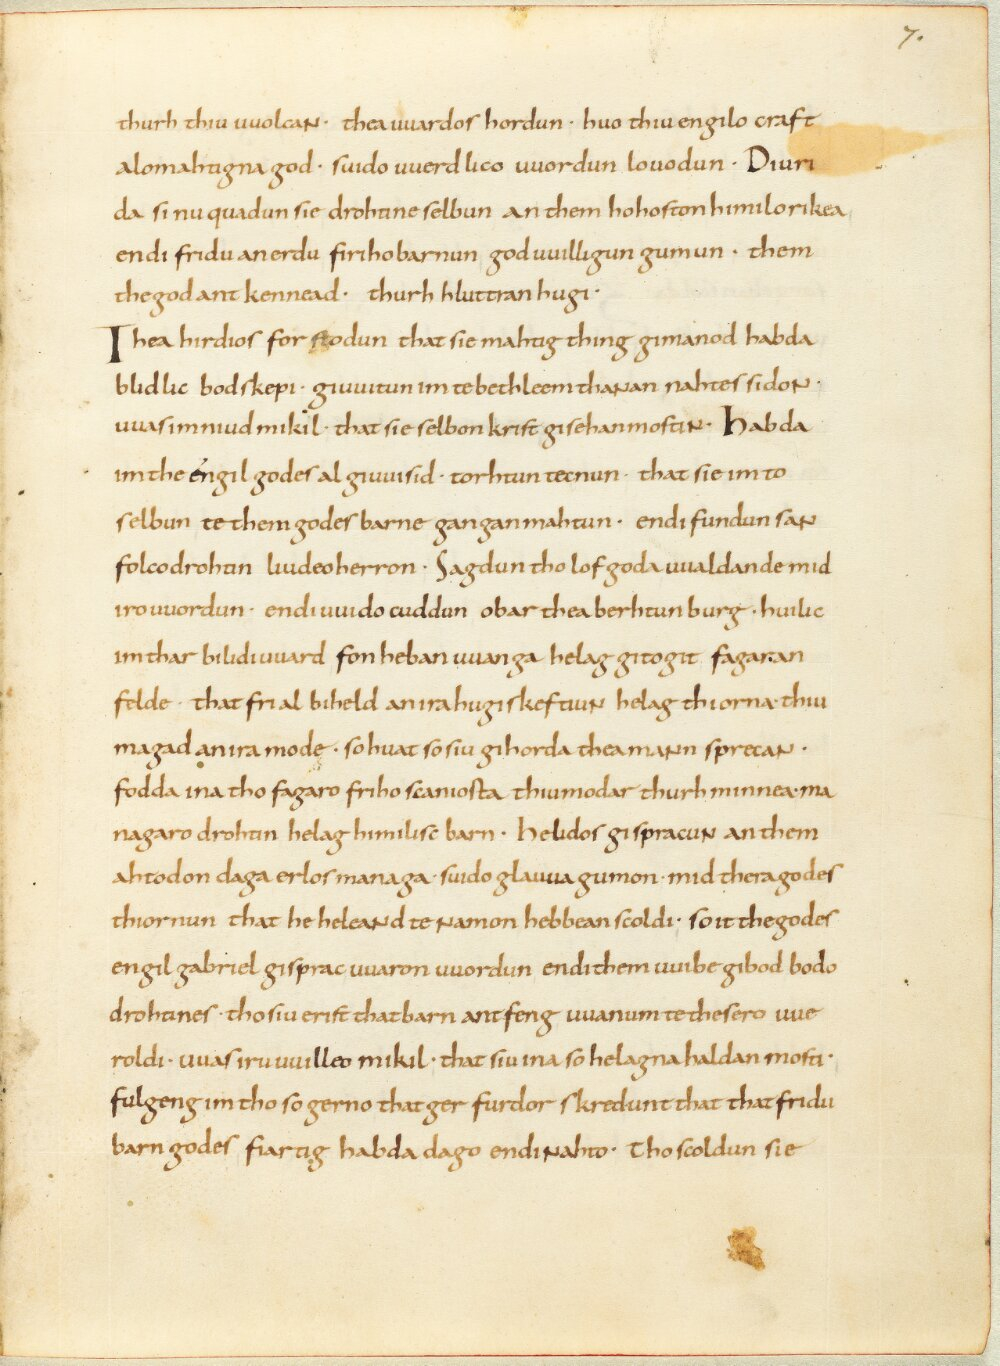 7.
thurh thiu uuolcan · thea uuardos hordun · huo thiu engilo craft
alomahtigna god · suido uuerdlico uuordun louodun · Diuri
da si nu quadun sie drohtine selbun an them hohoston himilo rikea
endi fridu an erdu firiho barnun goduuilligun gumun · them
the god antkennead · thurh hluttran hugi ·
Thea hirdios forstodun that sie mahtig thing gimanod habda
blidlic bodskepi · giuuitun im te bethleem thanan nahtes sidon ·
uuas im niud mikil · that sie selbon krist gisehan mostin · Habda
im the éngil godes al giuuisid · torhtun tecnun · that sie im to
selbun te them godes barne gangan mahtun · endi fundun san
folco drohtin liudeo herron · Sagdun tho lof goda uualdande mid
iro uuordun · endi uuido cuddun obar thea berhtun burg · huilic
im thar bilidi uuard fon heban uuanga helag gitogit fagar an
felde · that fri al biheld an ira hugiskeftiun helag thiorna · thiu
magad an ira mode · so huat so siu gihorda thea mann sprecan ·
fodda ina tho fagaro friho scaniosta thiu modar thurh minnea · ma
nagaro drohtin helag himilisc barn · Helidos gispracun an them
ahtodon daga erlos managa · suido glauua gumon · mid thera godes
thiornun that he heleand te namon hebbean scoldi · so it the godes
engil gabriel gisprac uuaron uuordun endi them uuibe gibod bodo
drohtines · tho siu erist that barn antfeng uuanum te thesero uue
roldi · uuas iru uuilleo mikil · that siu ina so helagna haldan mosti ·
fulgeng im tho so gerno that ger furdor skredun that that fridu
barn godes fiartig habda dago endi nahto · Tho scoldun sie